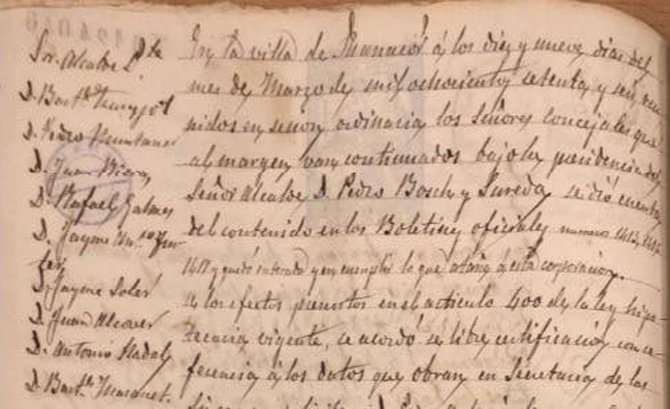 Sr. Alcalde Pte
D. Bartmé
D. Pedro Muntaner
D. Juan Riera
D. Rafael Galmes
D. Jayme
D. Jayme Soler
D. Juan Alcover
D. Antonio Nadal
D. Bartmé Massanet.
En la villa de Manacor á los diez y nueve dias del
mes de Marzo de mil ochocientos setenta y seis reu-
nidos en sesion ordinaria los Señores concejales que
al margen van continuados bajo la presidencia del
Señor Alcalde D. Pedro Bosch y Sureda se dió cuenta
del contenido en los Boletines oficiales numeros
y quedó enterado y en cumplir lo que atañe á esta corporacion.
A los efectos previstos en el articulo 400 de la ley hipo-
tecaria vigente, se acordó se libre certificacion con re-
ferencia á los datos que obran en Secretaria de las